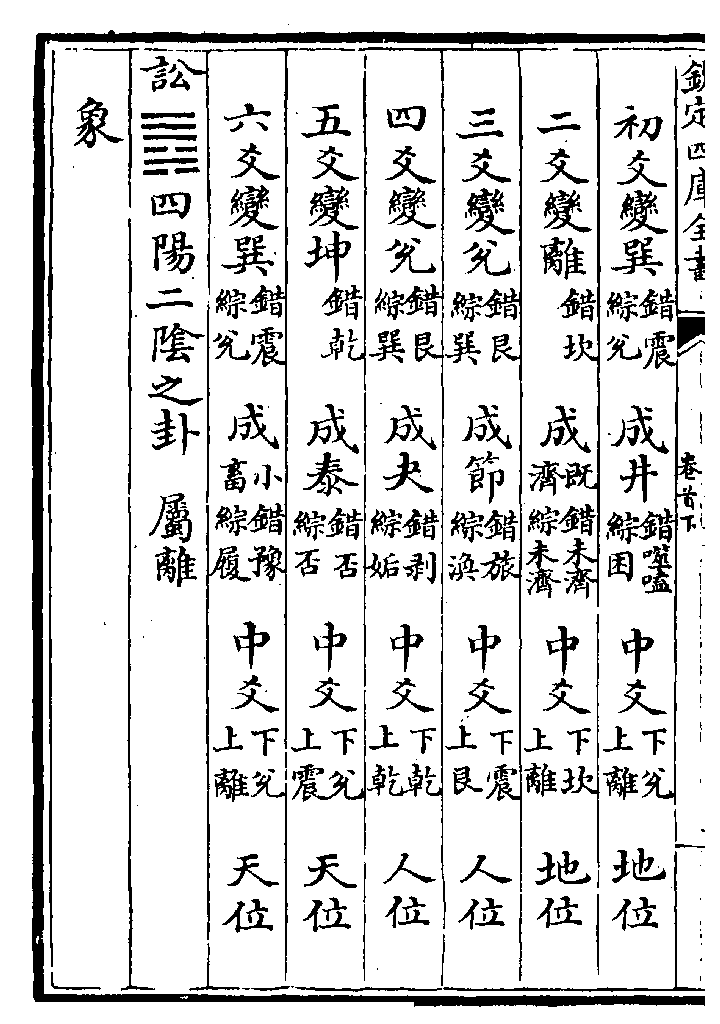 欽定四庫全書
卷首下
初爻變巽 錯震 綜兊 成井 錯噬嗑 綜困 中爻 下兊 上離 地位
二爻變離 錯坎 成既濟 錯未濟 綜未濟 中爻 下坎 上離 地位
三爻變兊 錯艮 綜巽 成節 錯旅 綜渙 中爻 下震 上艮 人位
四爻變兊 錯艮 綜巽 成夬 錯剥 綜姤 中爻 下乾 上乾 人位
五爻變坤 錯乾 成泰 錯否 綜否 中爻 下兊 上震 天位
六爻變巽 錯震 綜兊 成小畜 錯豫 綜履 中爻 下兊 上離 天位
訟 ䷅ 四陽二陰之卦 屬離
象